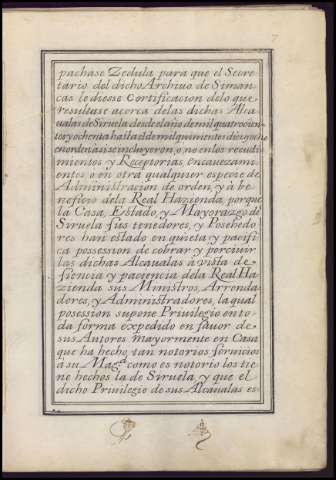 7
pachase Zedula para que el Secre
tario del dicho Archiuo de Siman
cas le diesse Certificacion delo que
resultase acerca delas dichas Alca
ualas de Siruela desde el año de mil quatrocien
tos y ochenta hasta el de mil quinientos diez que
en orden a si se incluyeron, o no en los recudi
mientos y Receptorias, encauezam
ientos, o en otra qualquier especie de
Administracion de orden, y à be
neficio dela Real Hazienda, porque
la Casa, Estado, y Mayorazgo de
Siruela sus tenedores, y Posehedo
res han estado en quieta y pacifi
ca possesion de cobrar y perciuir
las dichas Alcaualas à vista de
siencia y paciencia dela Real Ha
zienda sus Ministros, Arrenda
dores, y Administradores, la qual
posesion supone Priuilegio en to
da forma expedido en fauor de
sus Autores mayormente en Casa
que ha hecho tan notorios seruicios
a su Magd. como es notorio los tie
ne hechos la de Siruela y que el
dicho Priuilegio de sus Alcaualas es